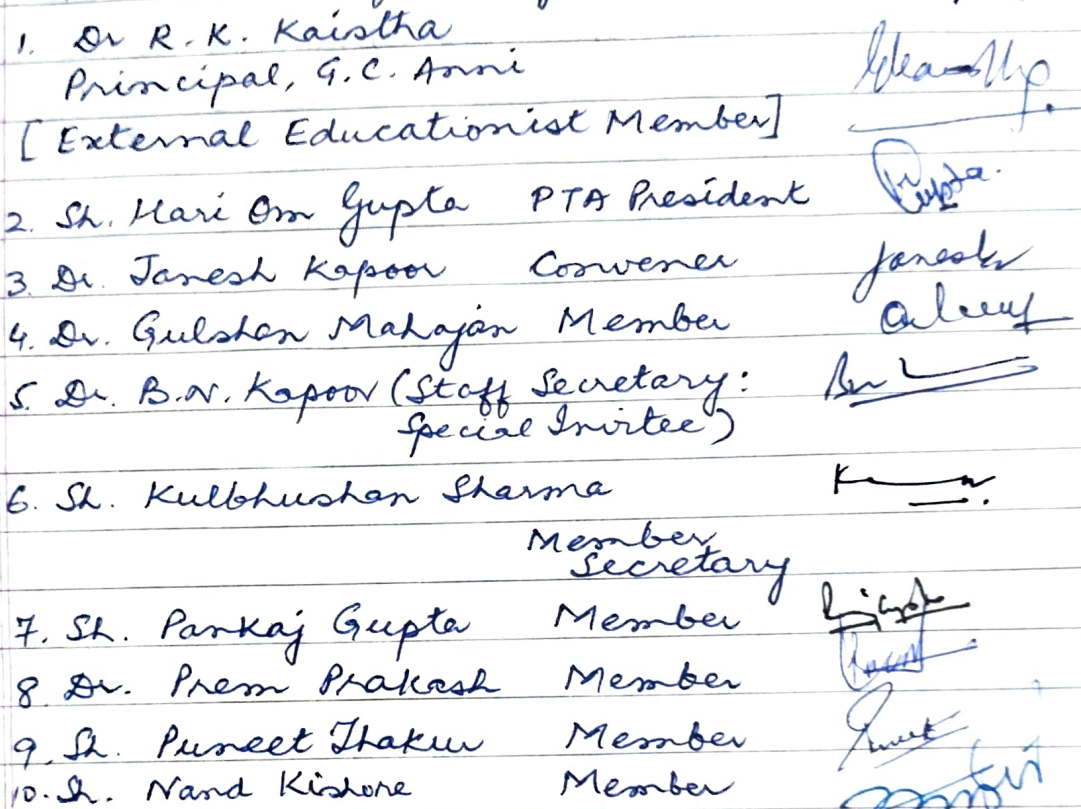 1. Dr R. K. Kaistha
Principal, G.C. Anni
[External Educationist Member]
2. Sh. Hari Om Gupta PTA President Gupta.
3. Dr. Janesh Kapoor Convener Janesh
4. Dr. Gulshan Mahajan Member
5. Dr. B.N. Kapoor (Staff Secretary:
Special Invitee)
6. Sh. Kulbhushan Sharma
Member
Secretary
7. Sh. Pankaj Gupta Member
8 Dr. Prem Prakash Member
9. Sh. Puneet Thakur Member
10. Sh. Nand Kishore Member